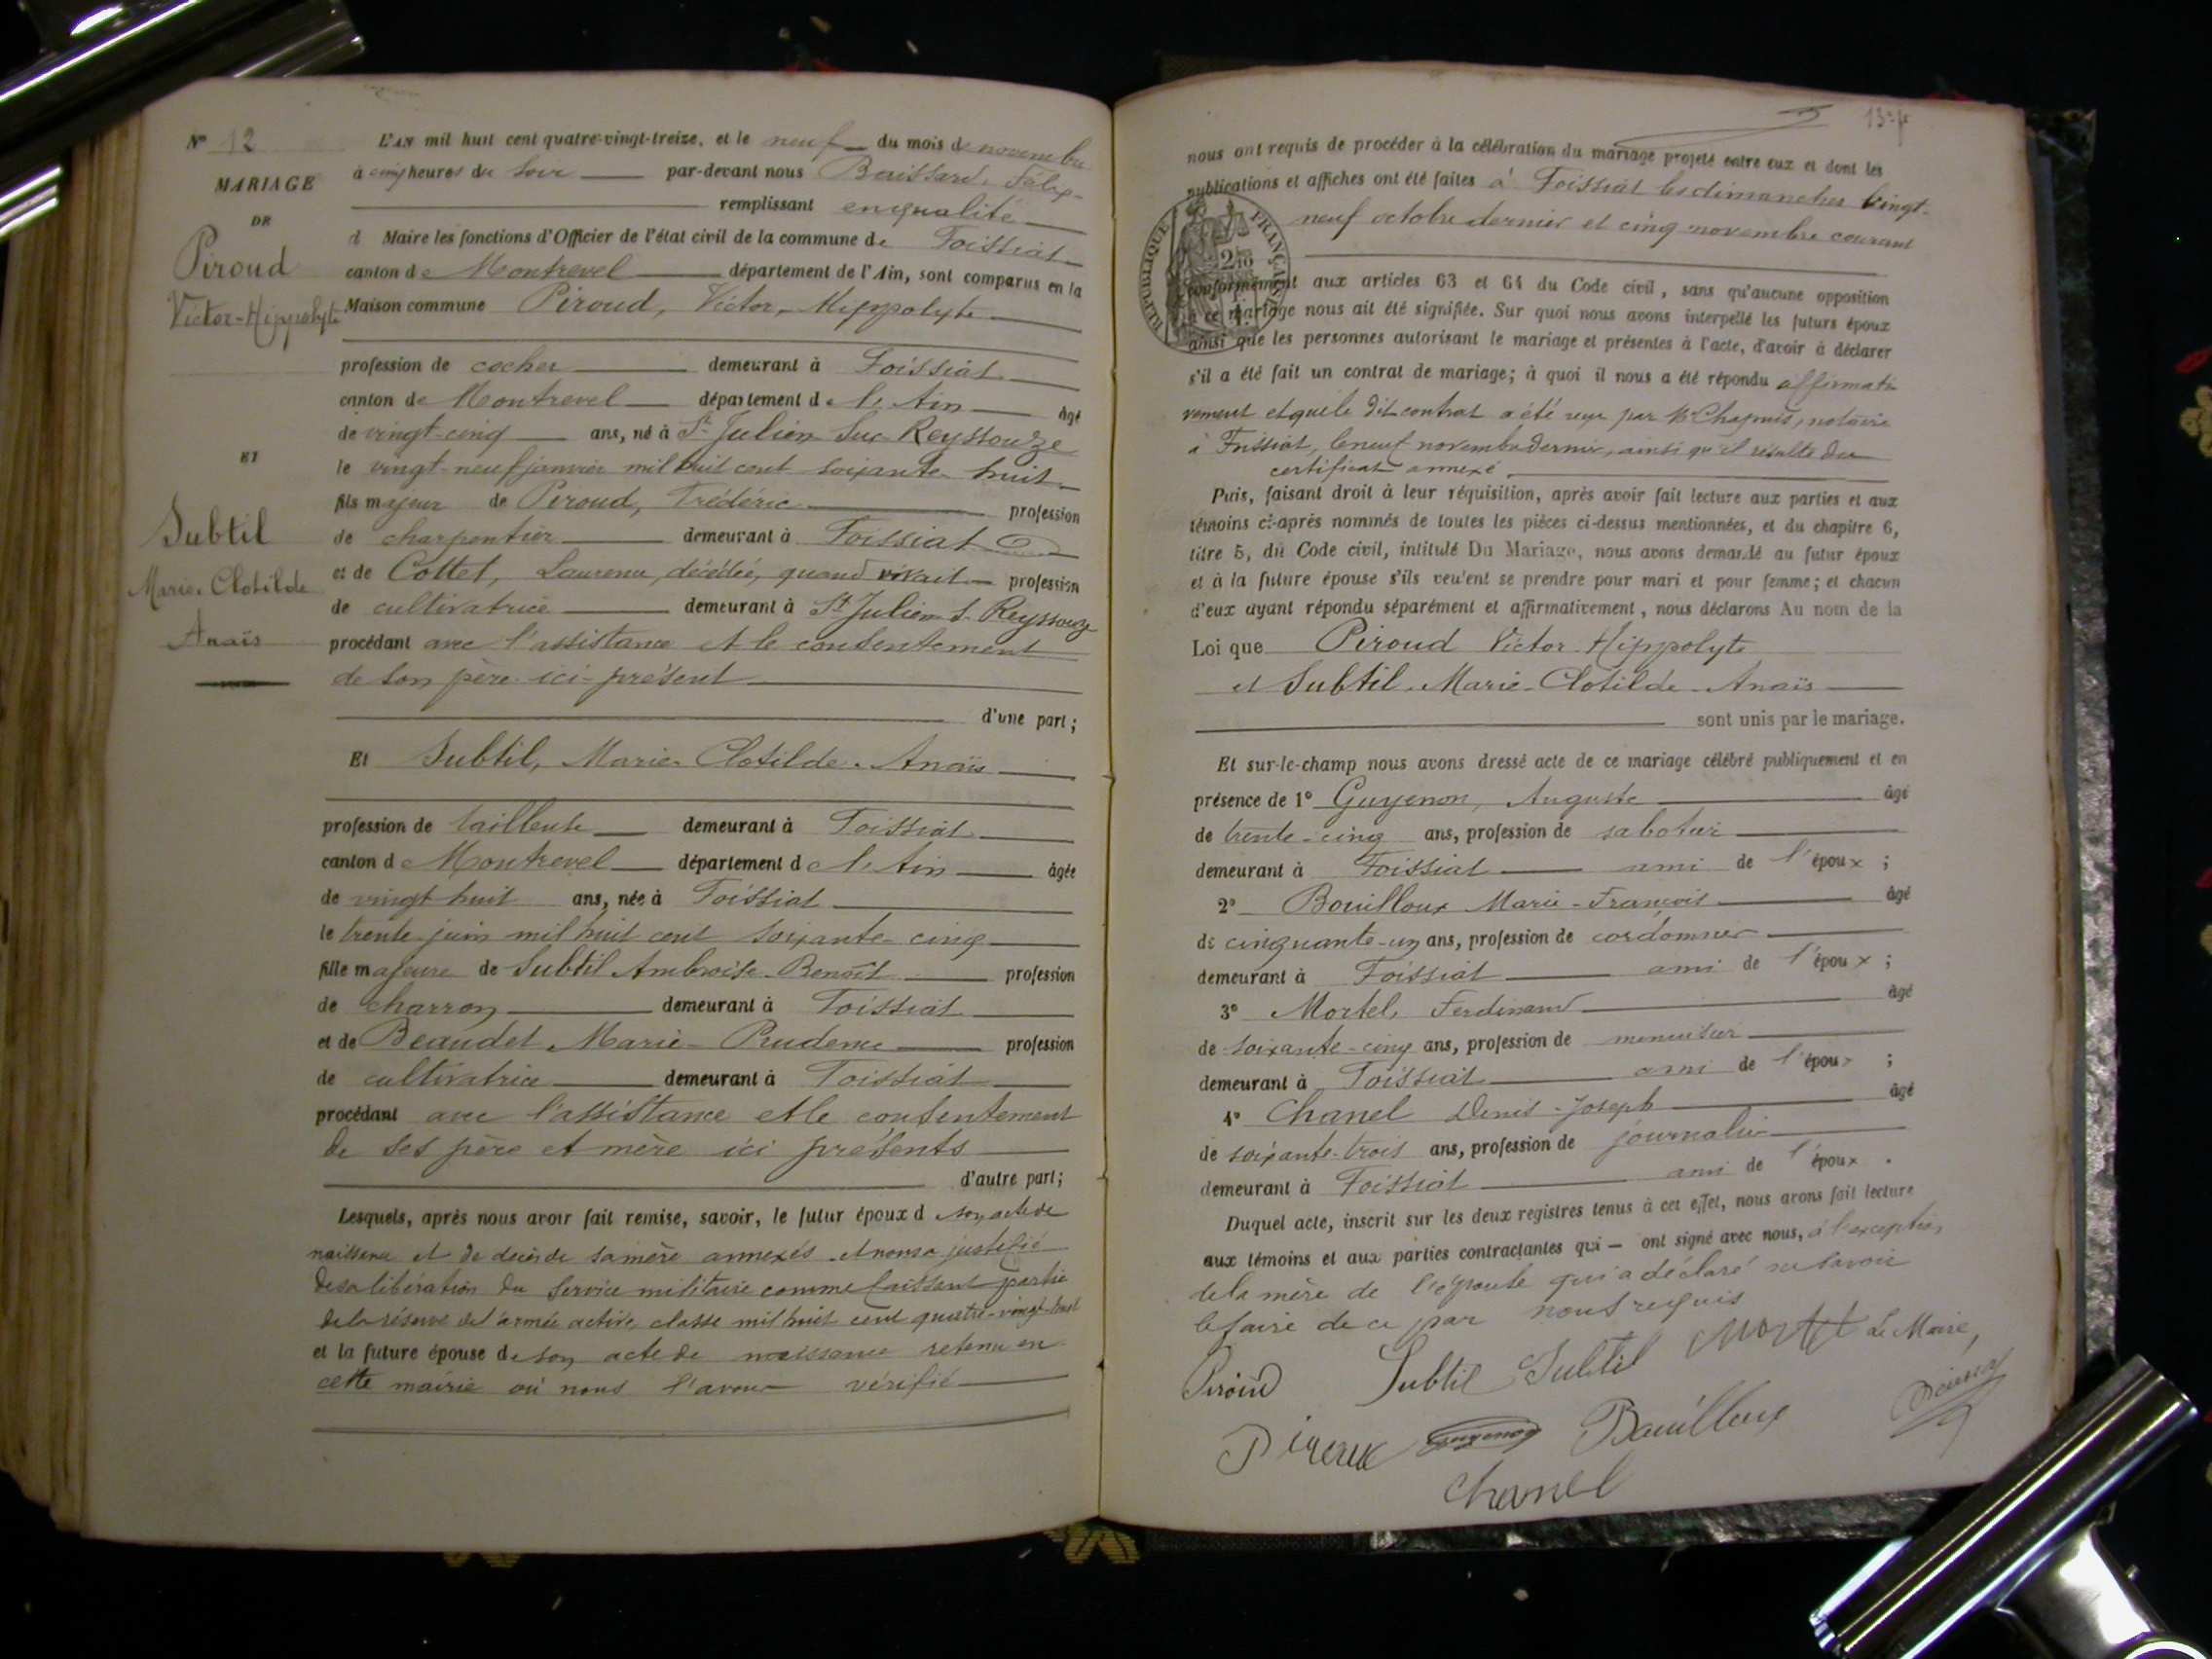 N° 12
MARIAGE
DE
Piroud
Victor-Hippolyte
ET
Subtil
Marie-Clotilde
Anaïs
L'AN mil huit cent quatre-vingt-treize, et le neuf du mois de novembre
à cinq heures du soir par-devant nous Boissard, Félix
remplissant en qualité
d Maire les fonctions d'Officier de l'état civil de la commune de Foissiat
canton de Montrevel département de l'Ain, sont comparus en la
Maison commune Piroud, Victor, Hippolyte
profession de cocher demeurant à Foissiat
canton de Montrevel département de l'Ain âgé
de vingt-cinq ans, né à St Julien Sur Reyssouze
le vingt-neuf janvier mil huit cent soixante huit
fils majeur de Piroud, Frédéric profession
de charpentier demeurant à Foissiat
et de Cottet, Laurence, décédée, quand vivait profession
de cultivatrice demeurant à St Julien S. Reyssouze
procédant avec l'assistance et le consentement
de son père ici-présent
d'une part;
Et Subtil, Marie-Clotilde-Anaïs
profession de tailleuse demeurant à Foissiat
canton de Montrevel département de l'Ain âgée
de vingt huit ans, née à Foissiat
le trente juin mil huit cent soixante-cinq
fille majeure de Subtil Ambroise-Benoît profession
de charron demeurant à Foissiat
et de Beaudet Marie-Prudence profession
de cultivatrice demeurant à Foissiat
procédant avec l'assistance et le consentement
de ses père et mère ici présents
d'autre part;
Lesquels, après nous avoir fait remise, savoir, le futur époux d son acte de
naissance et de décès de sa mère annexés et nous a justifié
de sa libération du service militaire comme faissant partie
de la réserve de l'armée active, classe mil huit cent quatre-vingt-huit
et la future épouse de son acte de naissance retenu en
cette mairie où nous l'avons vérifié
nous ont requis de procéder à la célébration du mariage projeté entre eux et dont les
publications et affiches ont été faites à Foissiat les dimanches vingt-
neuf octobre dernier et cinq novembre courant
RÉPUBLIQUE FRANÇAISE
conformément aux articles 63 et 64 du Code civil, sans qu'aucune opposition
à ce mariage nous ait été signifiée. Sur quoi nous avons interpellé les futurs époux
ainsi que les personnes autorisant le mariage et présentes à l'acte, d'avoir à déclarer
s'il a été fait un contrat de mariage; à quoi il nous a été répondu affirmati
vement et que le dit contrat a été reçu par Me Chapuis, notaire
à Foissiat, le neuf novembre dernier, ainsi qu'il résulte du
certificat annexé
Puis, faisant droit à leur réquisition, après avoir fait lecture aux parties et aux
témoins ci-après nommés de toutes les pièces ci-dessus mentionnées, et du chapitre 6,
titre 5, du Code civil, intitulé Du Mariage, nous avons demandé au futur époux
et à la future épouse s'ils veulent se prendre pour mari et pour femme; et chacun
d'eux ayant répondu séparément et affirmativement, nous déclarons Au nom de la
Loi que Piroud Victor-Hippolyte
et Subtil-Marie-Clotilde-Anaïs
sont unis par le mariage.
Et sur-le-champ nous avons dressé acte de ce mariage célébré publiquement et en
présence de 1° Guyenon, Auguste âgé
de trente-cinq ans, profession de saboteur
demeurant à Foissiat ami de l'époux;
2° Bouilloux Marie-François âgé
de cinquante-un ans, profession de cordonnier
demeurant à Foissiat ami de l'époux;
3° Mortel, Ferdinand âgé
de soixante-cinq ans, profession de menuisier
demeurant à Foissiat ami de l'époux;
4° Chanel Denis-Joseph âgé
de soixante-trois ans, profession de journalier
demeurant à Foissiat ami de l'époux.
Duquel acte, inscrit sur les deux registres tenus à cet effet, nous avons fait lecture
aux témoins et aux parties contractantes qui – ont signé avec nous, à l'exception
de la mère de l'épouse qui a déclaré ne savoir
le faire de ce par nous requis
Piroud Subtil Subtil Mortel Le Maire,
Guyenon Bouilloux
Chanel